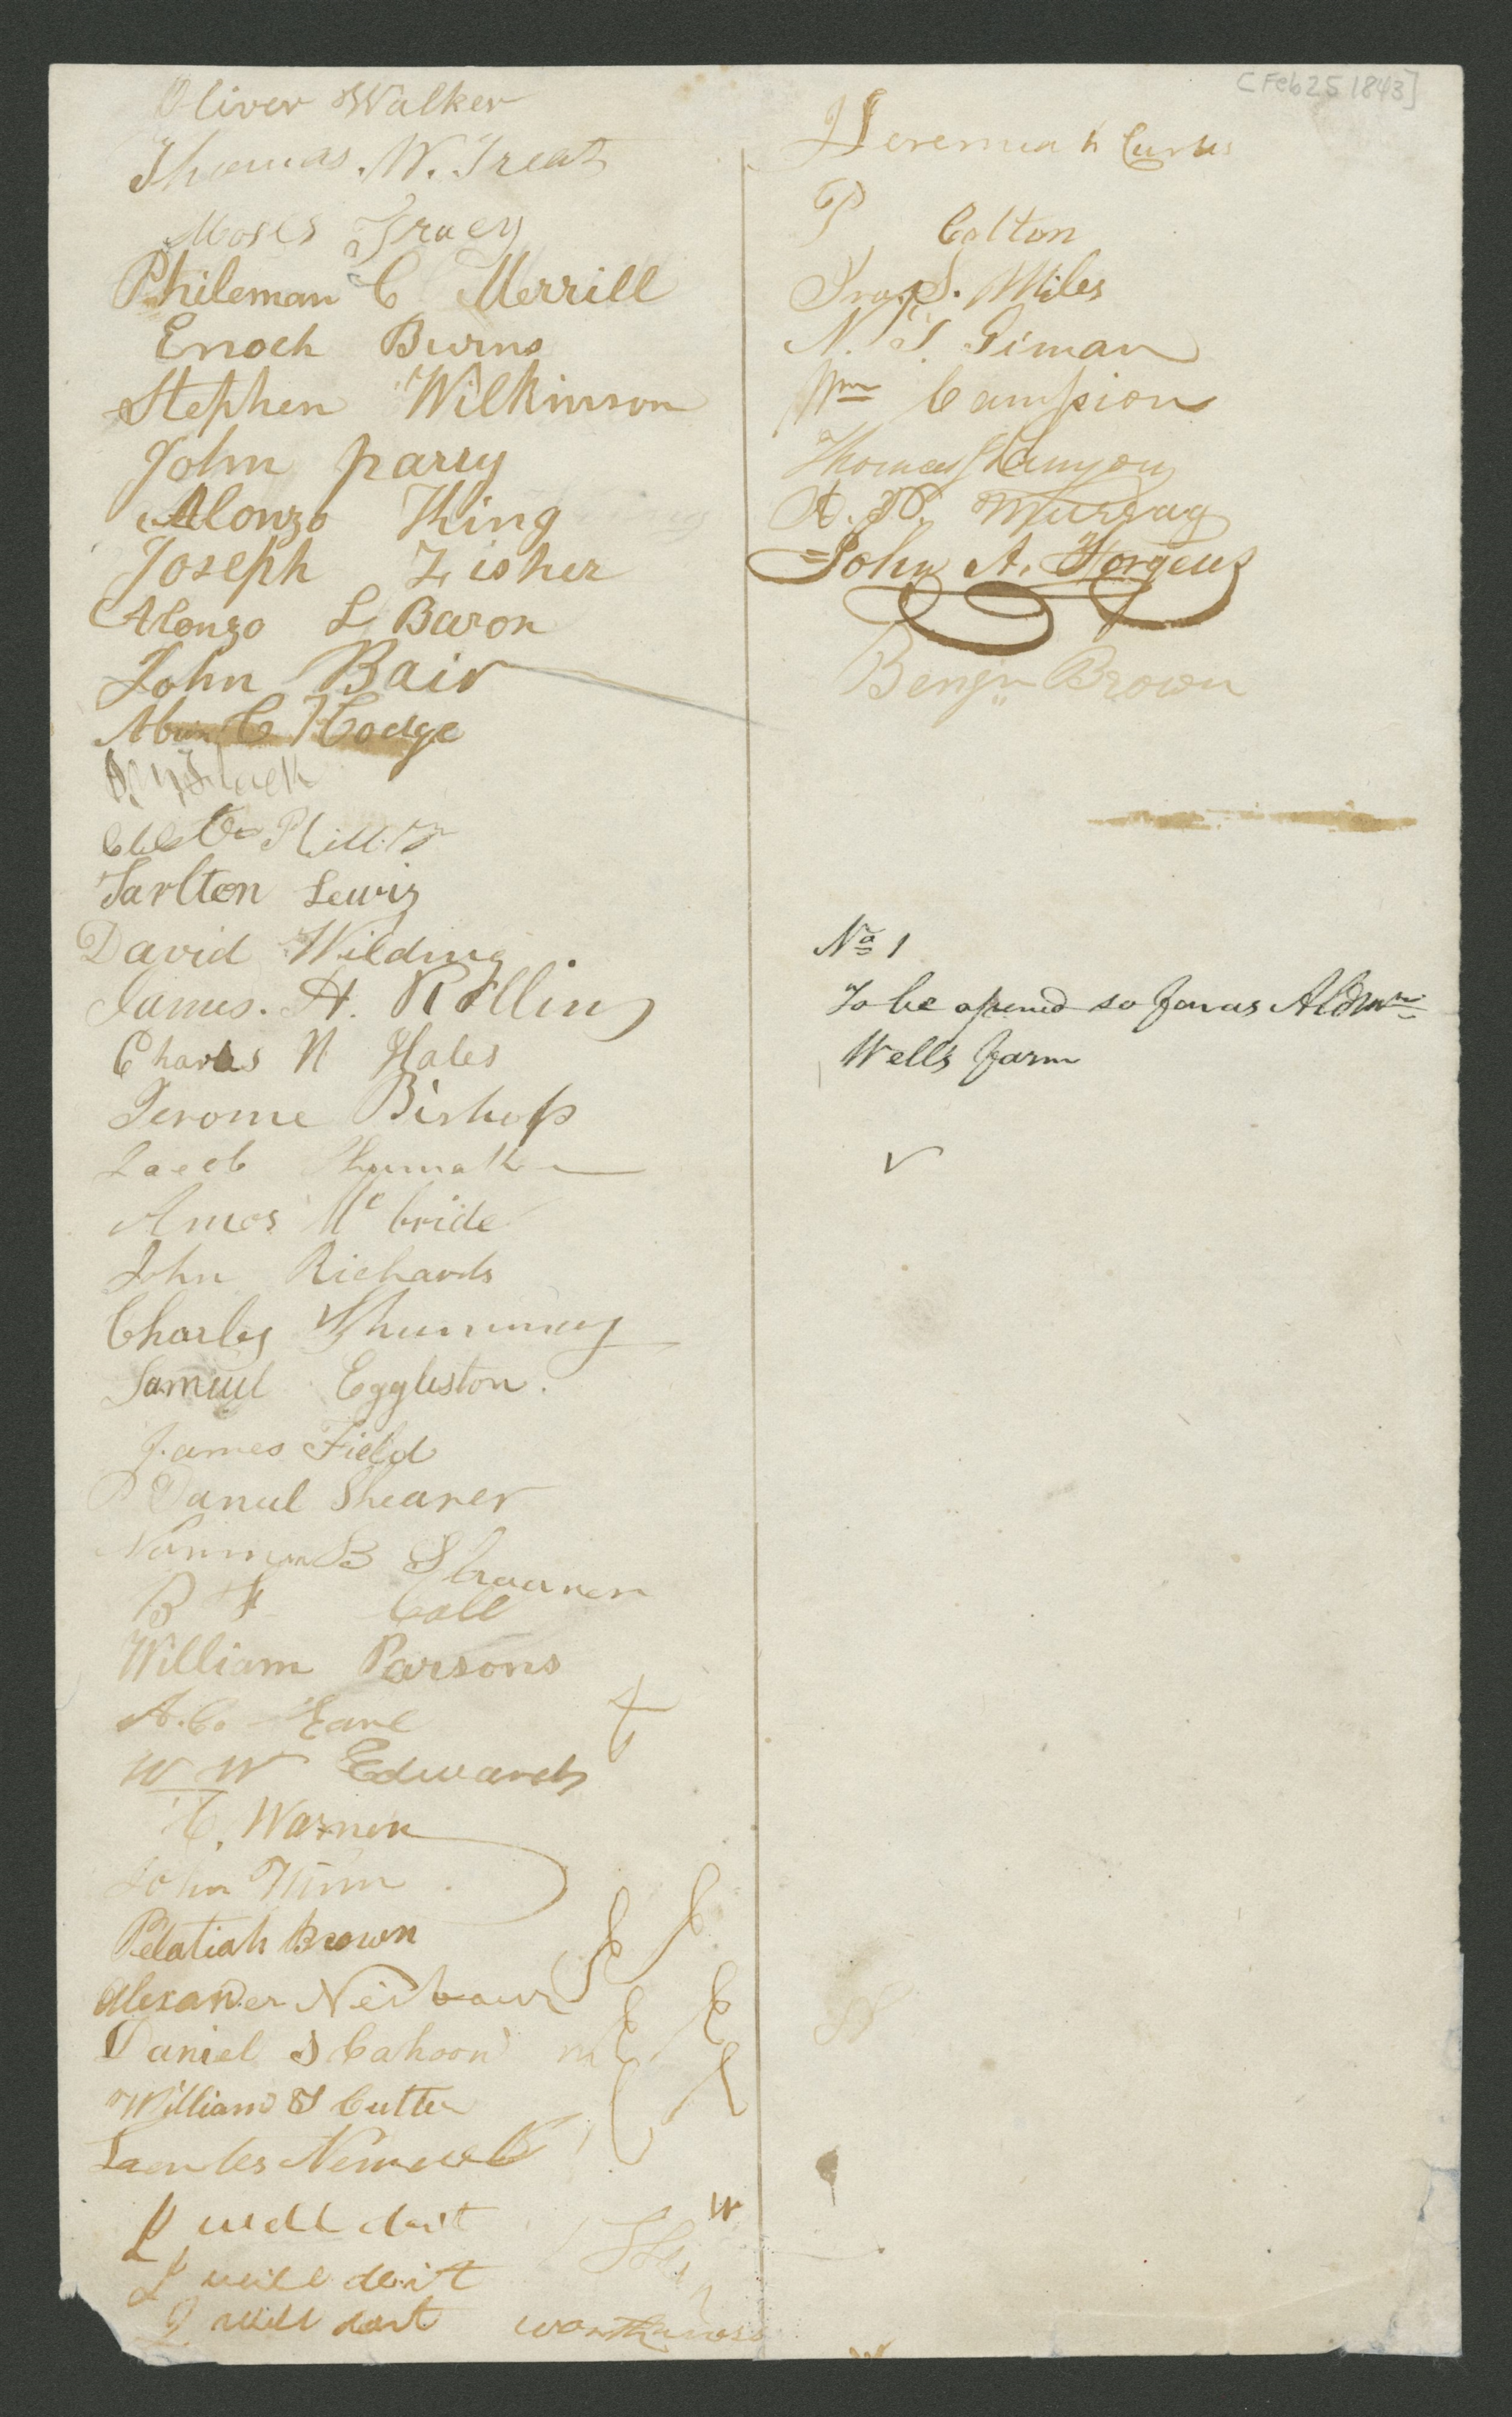 [Feb 25 1843]
Oliver Walker
Thomas. W. Treat
Moses Tracy
Phileman C Merrill
Enoch Burns
Stephen Wilkinson
John parry
Alonzo King
Joseph Fisher
Alonzo L Baron
John Bair
C Hodge
Tarlton Lewis
David Wilding
James. H. Rollins
Charles N Hales
Jerome Bishop
Jacob
Amos Mc bride
John Richards
Charles Shummay
Samuel Eggleston.
James Field
Daniel Shearer
Norman B Shearer
B F Call
William Parsons
A. C. Earl
W W Edwards
C. Warner
John
Pelatiah Brown
Alexander Neibaur
Daniel S Cahoon
William S Cutler
I will do it
I will do it
I will do it
Jeremiah Curtis
P Colton
Ira S. Miles
N. T. Giman
Wm Campion
Thomas Kunyon
John A. Forgeus
Benjn Brown
No 1
To be opened so far as Aldmn
Wells farm